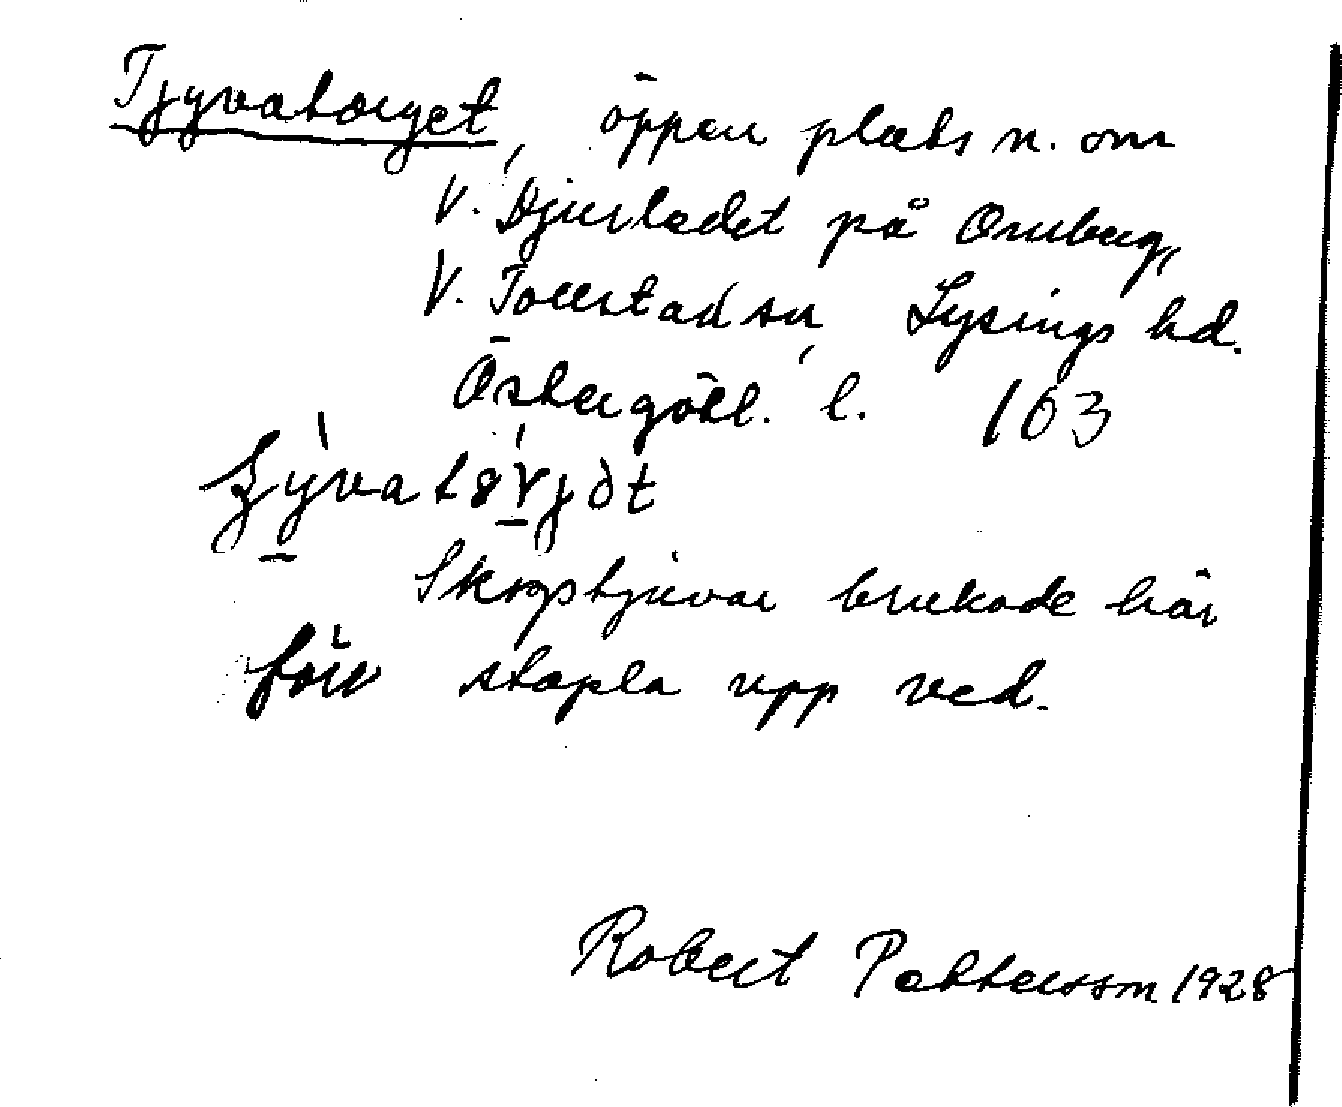 Tjyvatorget, öppen plats n. om
V. Djurledet på Omberg,
V. Tollstad sn, Lysings hd.
Östergötl. l. 163
Skogstjuvar brukade här
förr stapla upp ved.
Robert Pettersson 1928